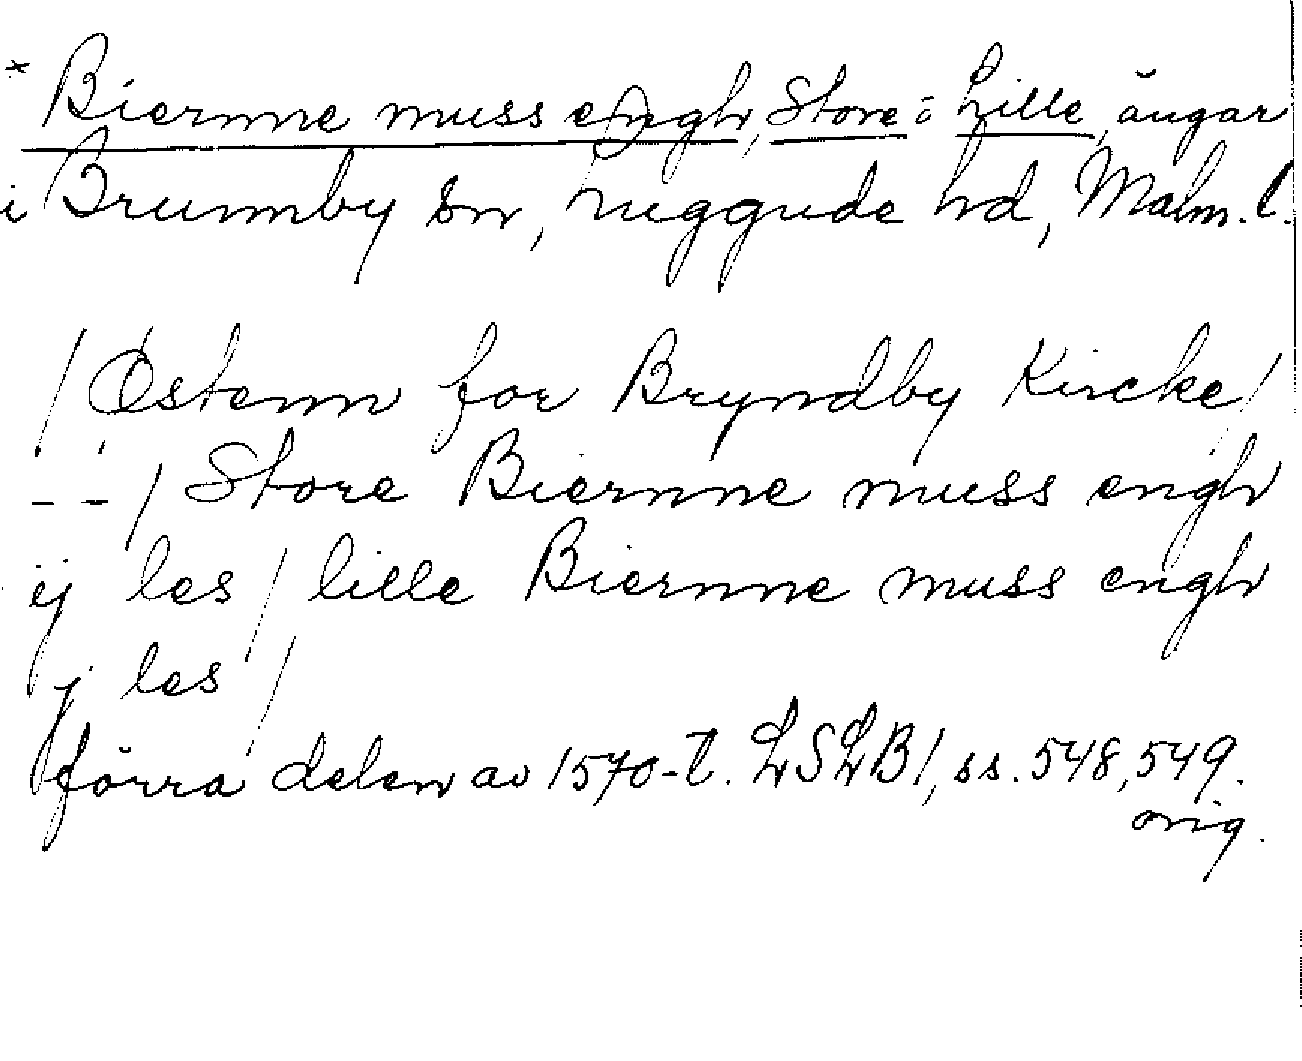 * Biernne muss engh, Store o Lille, ängar
i Brunnby sn, Luggude hd, Malm. l.
/ Østenn for Bryndby Kircke /
- - / Store Biernne muss engh
ij les / lille Biernne muss engh
j les /
förra delen av 1570-t. LSLB 1, ss. 548, 549.
orig.